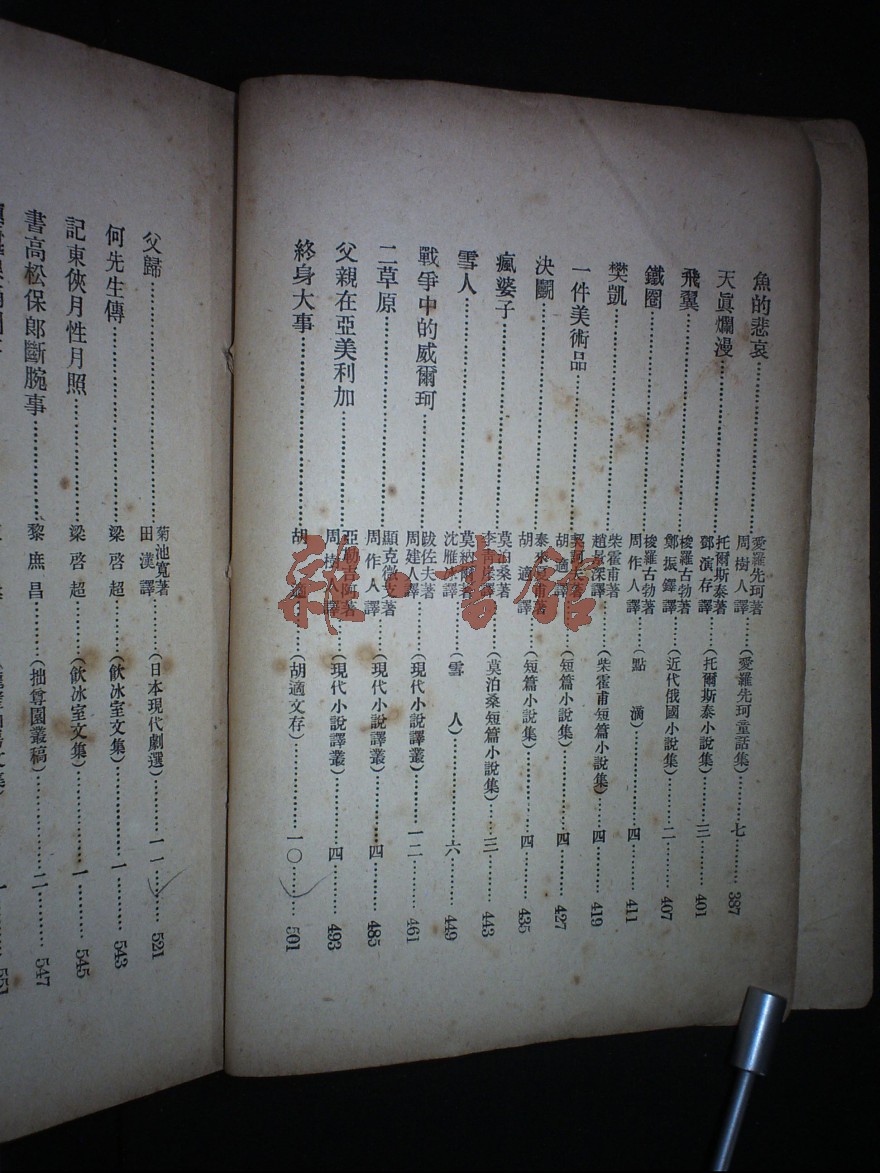 魚的悲哀……愛羅先珂著 周樹人譯……(愛羅先珂童話集)……七……387
天眞爛漫……托爾斯泰著 鄧演存譯……(托爾斯泰小說集)……三……401
飛翼……梭羅古勃著 鄭振鐸譯……(近代俄國小說集)……二……407
鐵圈……梭羅古勃著 周作人譯……(點滴)……四……411
樊凱……柴霍甫著 趙景深譯……(柴霍甫短篇小說集)……四……419
一件美術品……契訶夫著 胡適譯……(短篇小說集)……四……427
決鬭……泰來夏甫著 胡適譯……(短篇小說集)……四……435
瘋婆子……莫泊桑著 李青崖譯……(莫泊桑短篇小說集)……三……443
雪人……莫納爾著 沈雁冰譯……(雪人)……六……449
戰爭中的威爾珂……跋佐夫著 周建人譯……(現代小說譯叢)……一二……461
二草原……顯克微支著 周作人譯……(現代小說譯叢)……四……485
父親在亞美利加……亞勒吉阿著 周樹人譯……(現代小說譯叢)……四……493
終身大事……胡適……(胡適文存)……一〇……501
父歸……菊池寬著 田漢譯……(日本現代劇選)……一一……521
何先生傳……梁啓超……(飲冰室文集)……一……543
記東俠月性月照……梁啓超……(飲冰室文集)……一……545
書高松保郎斷腕事……黎庶昌……(拙尊園叢稿)……二……547
雜·書館